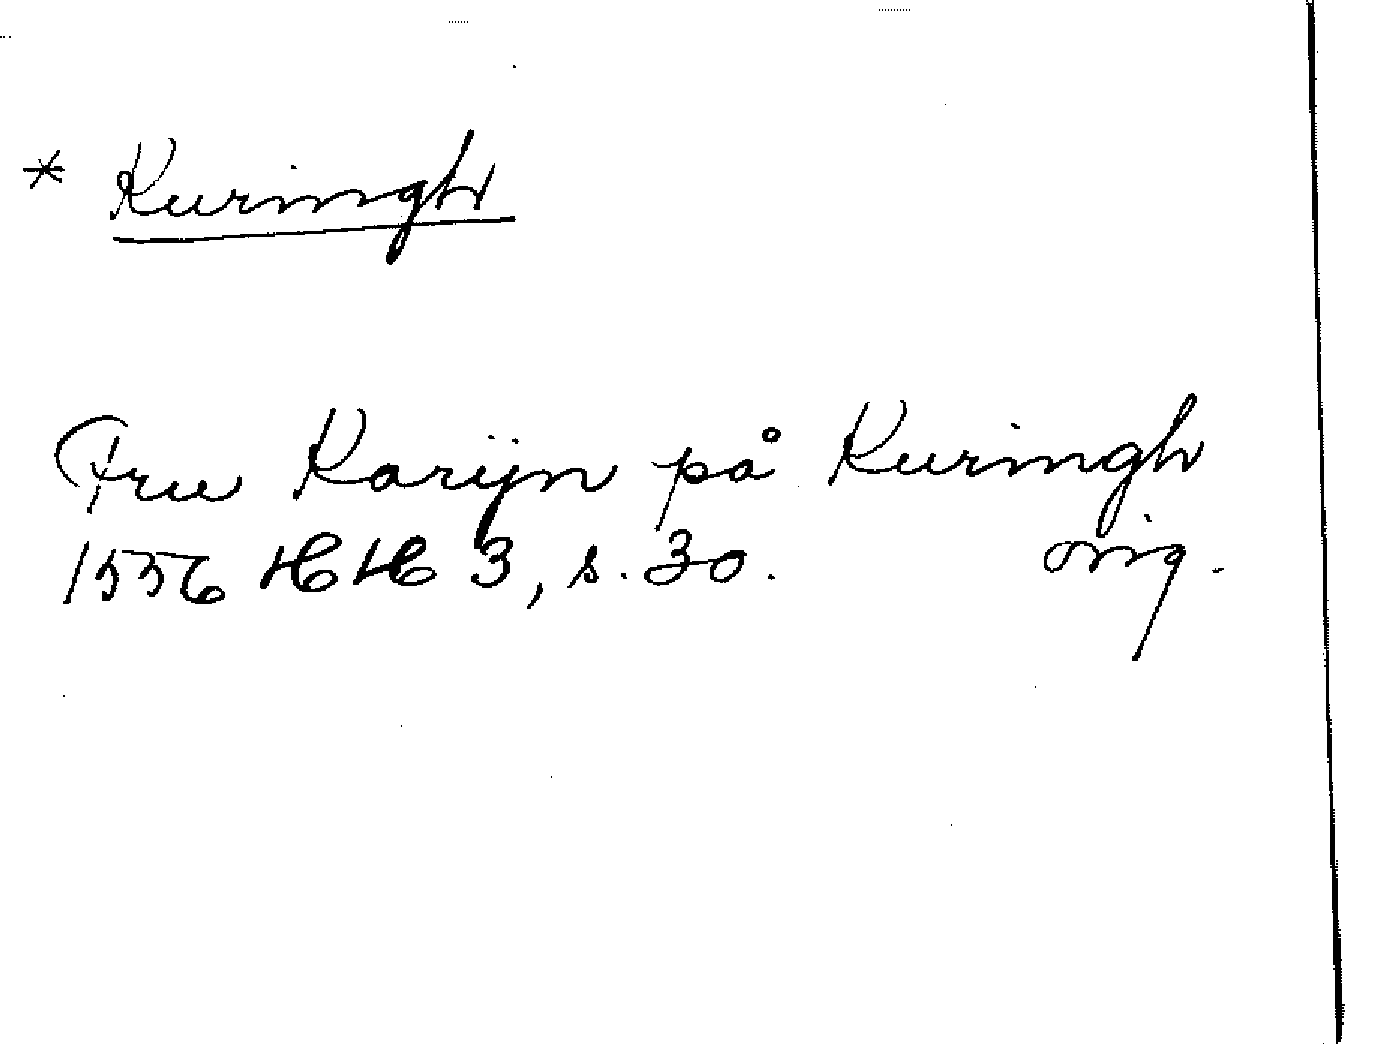 * Kuringh
Fru Karijn på Kuringh
1556 HH 3, s. 30. orig.